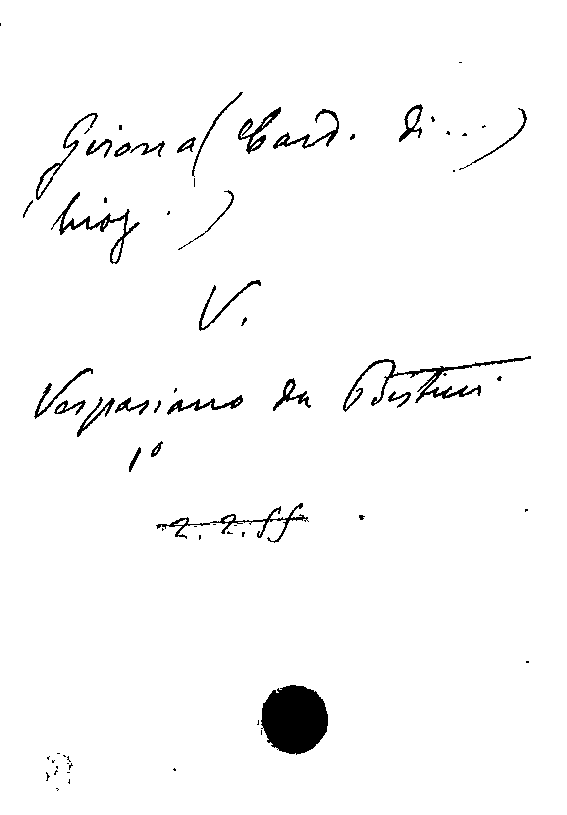 Girona (Card. di...)
(biog.)
V.
Vespasiano da Bisticci
1º
2. 2. ff.